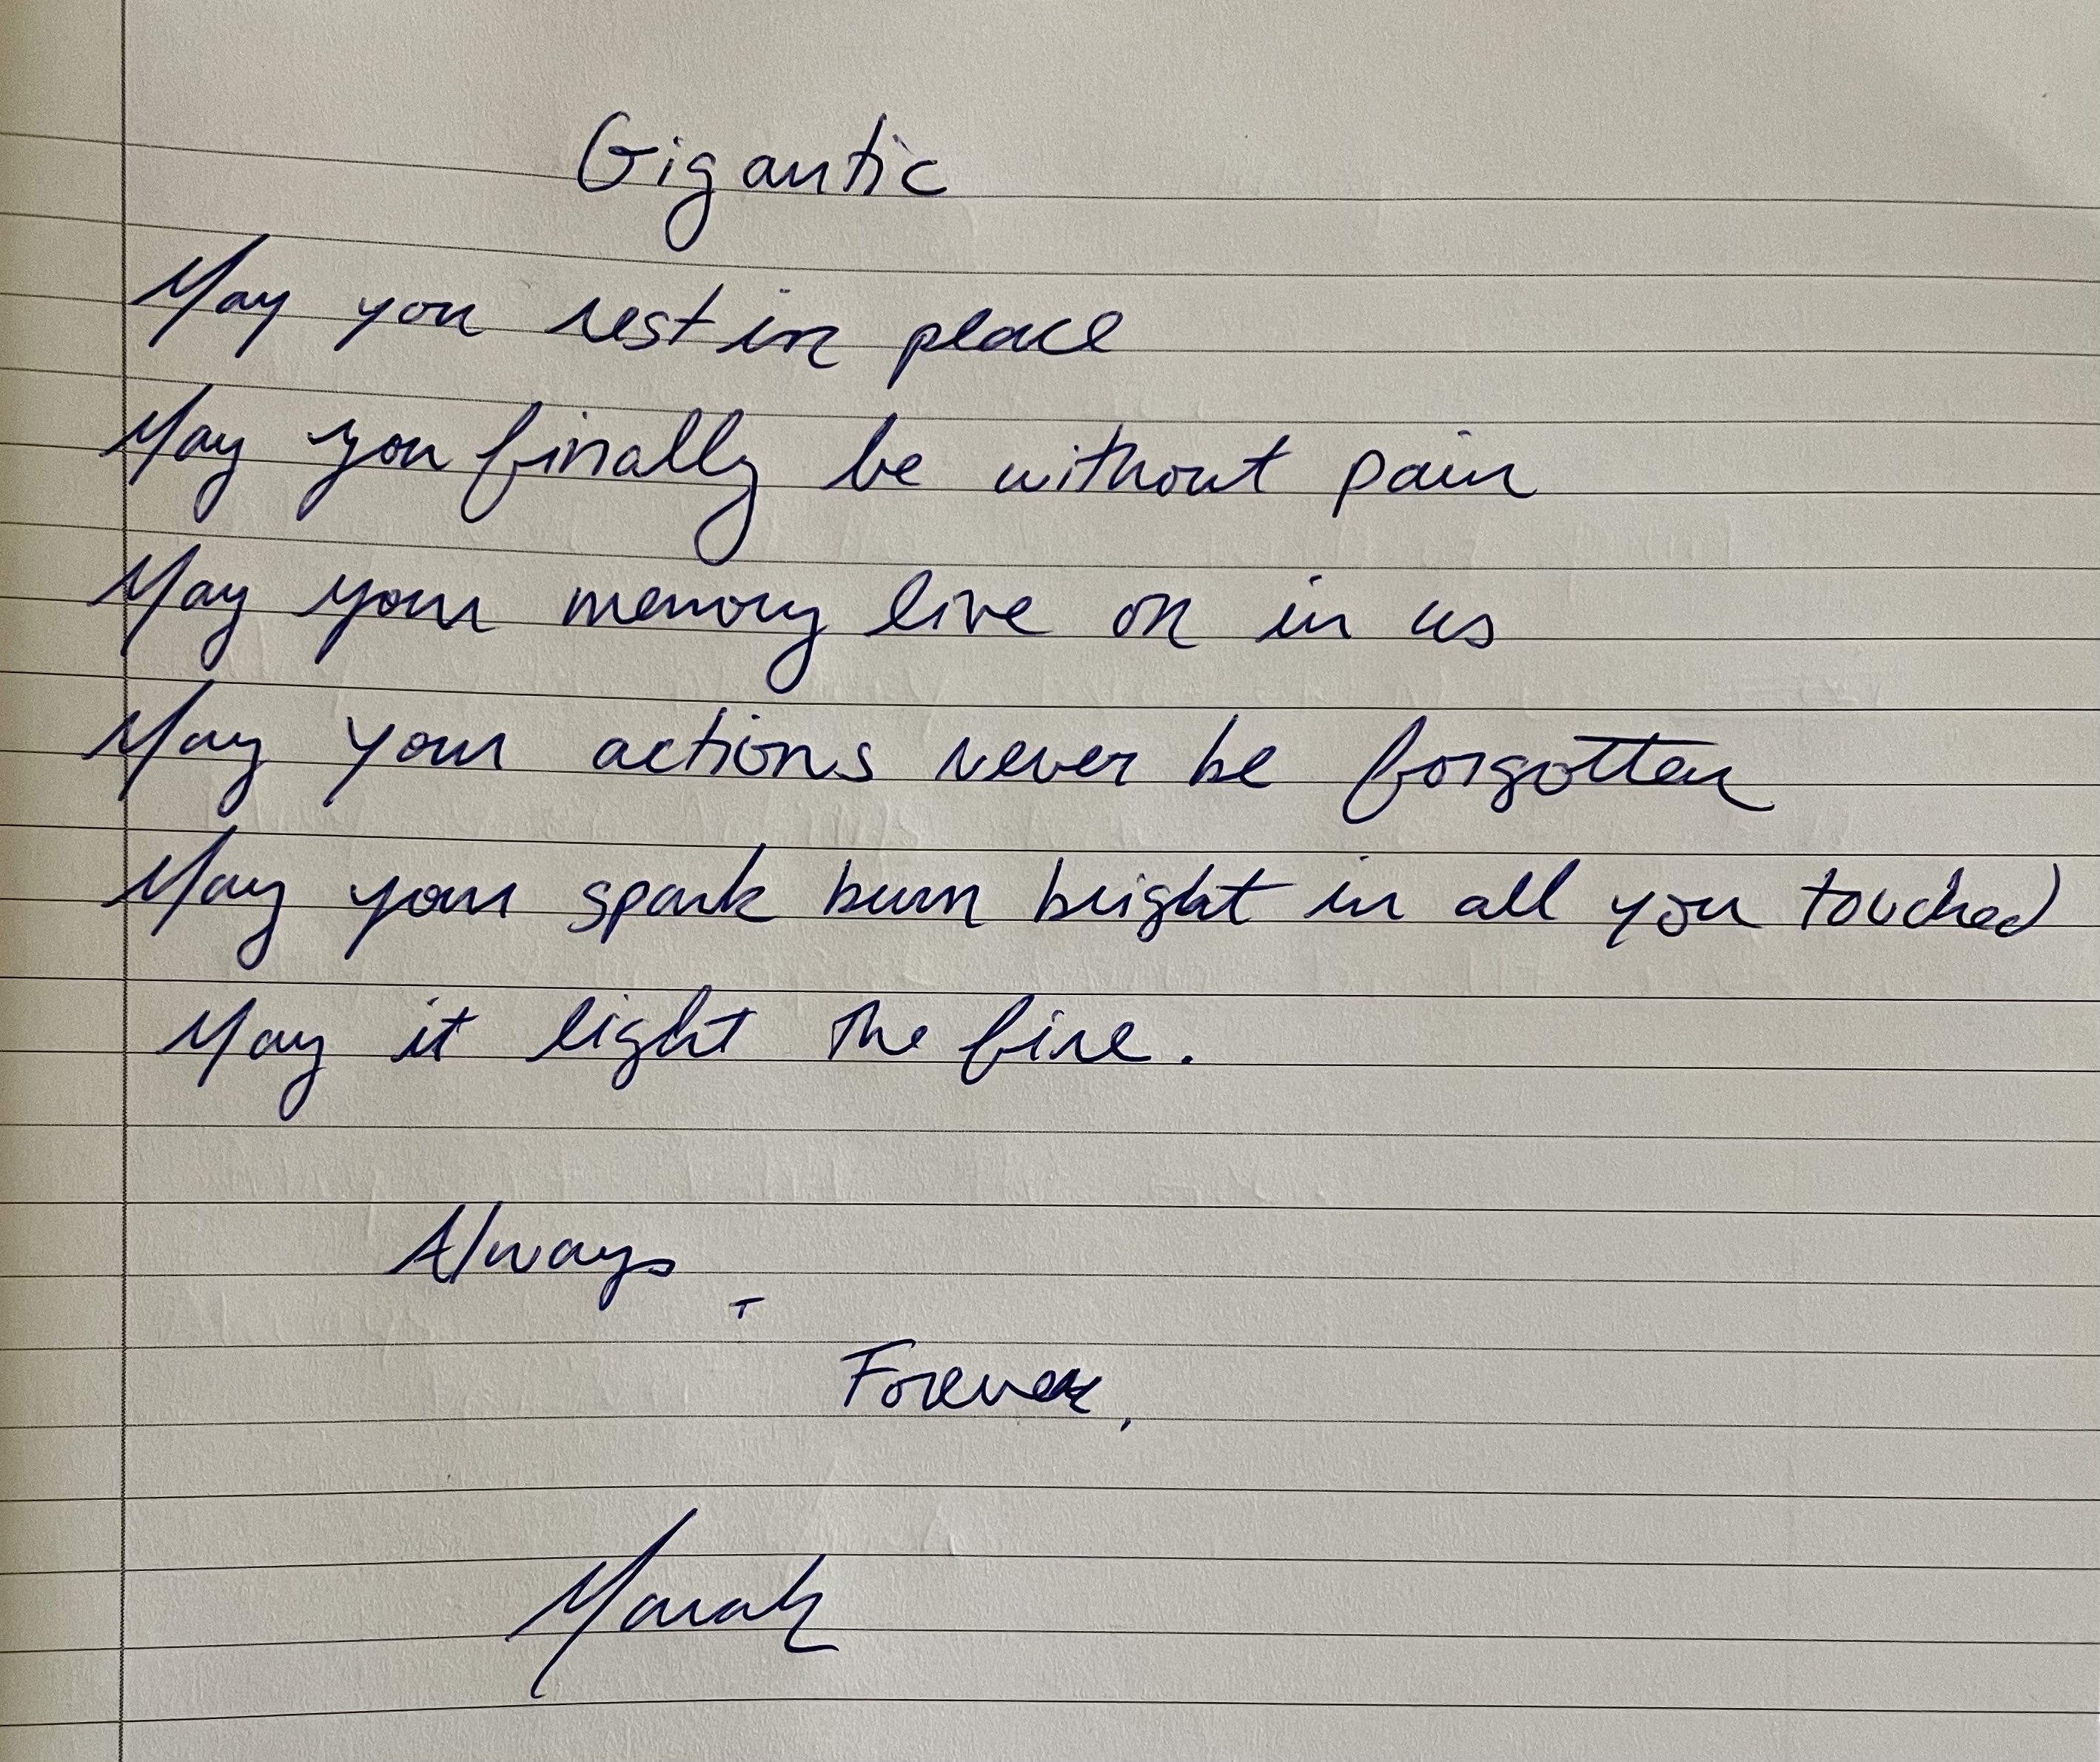 Gigantic
May you rest in peace
May you finally be without pain
May your memory live on in us
May your actions never be forgotten
May your spark burn bright in all you touched
May it light the fire.
Always
Forever,
Marah